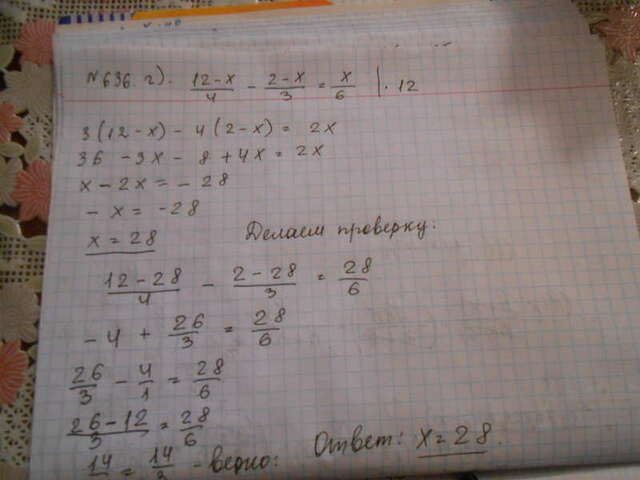 №636 г). (12-x)/4 - (2-x)/3 = x/6 | · 12
3(12-x) - 4(2-x) = 2x
36 - 3x - 8 + 4x = 2x
x - 2x = - 28
- x = - 28
x = 28 Делаем проверку:
(12-28)/4 - (2-28)/3 = 28/6
- 4 + 26/3 = 28/6
26/3 - 4/1 = 28/6
(26-12)/3 = 28/6
14/ = 14/3 - верно: Ответ: x = 28.